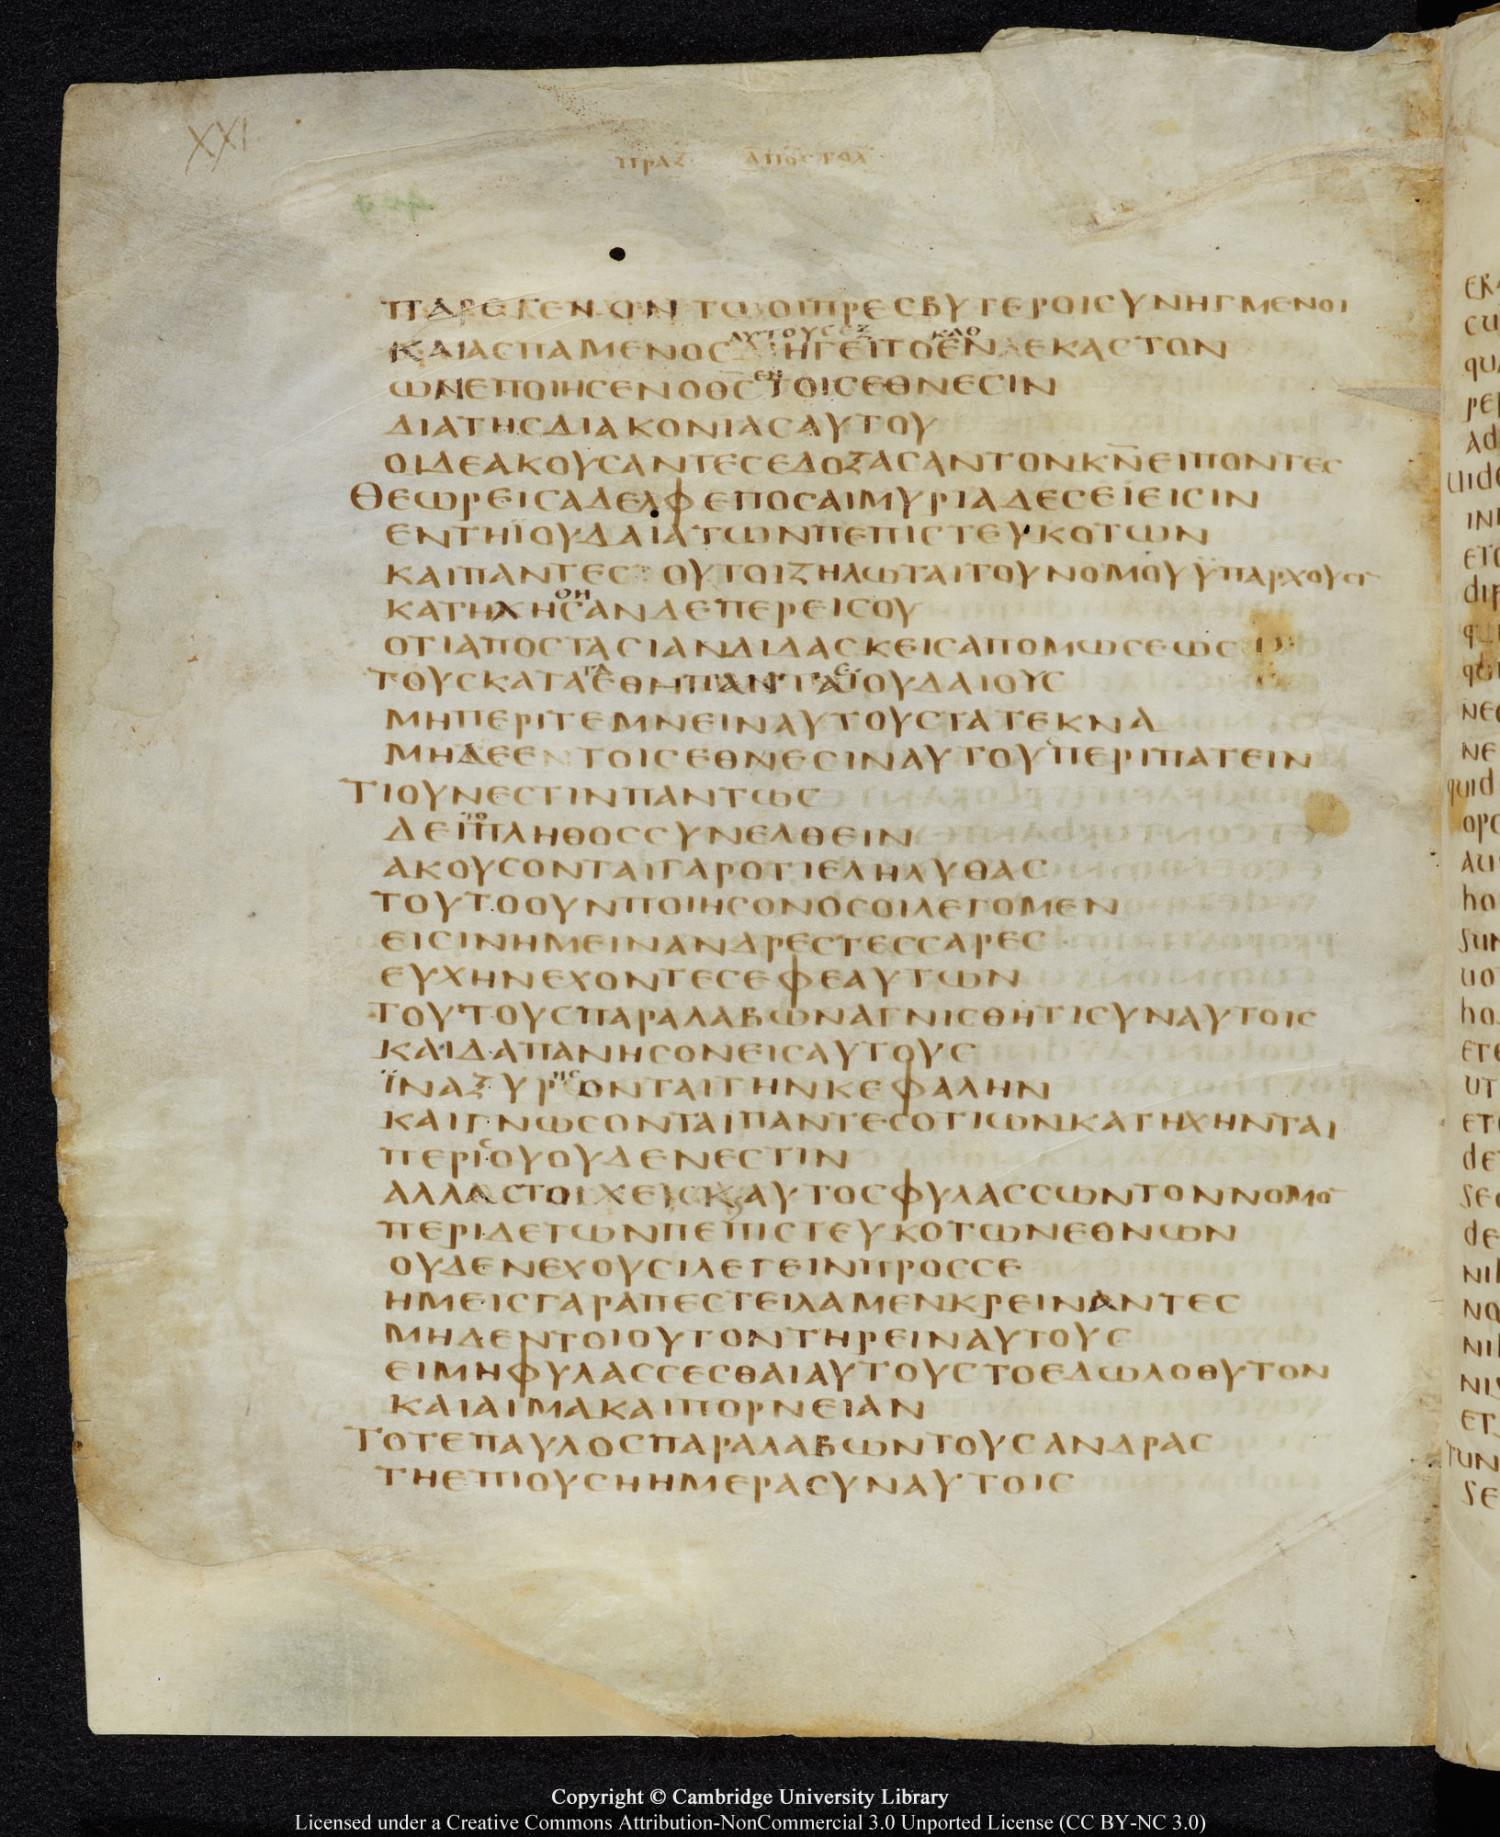 XXI
ΠΡΑΞ ΑΠΟΣΤΟΛ
ΠΑΡΕΓΕΝΟΝΤΩΟΙΠΡΕСΒΥΤΕΡΟΙСΥΝΗΓΜΕΝΟΙ
ΑΥΤΟΥСΕΞ ΚΑΘ
ΚΑΙΑСΠΑΜΕΝΟСΔΙΗΓΕΙΤΟΕΝΑΕΚΑСΤΟΝ
ΕΝ
ΩΝΕΠΟΙΗСΕΝΟΘСΤΟΙСΕΘΝΕСΙΝ
ΔΙΑΤΗСΔΙΑΚΟΝΙΑСΑΥΤΟΥ
ΟΙΔΕΑΚΟΥСΑΝΤΕСΕΔΟΞΑСΑΝΤΟΝΚΝΕΙΠΟΝΤΕС
ΘΕΩΡΕΙСΑΔΕΛΦΕΠΟСΑΙΜΥΡΙΑΔΕСΕΙΕΙСΙΝ
ΕΝΤΗΪΟΥΔΑΙΑΤΩΝΠΕΠΙСΤΕΥΚΟΤΩΝ
ΚΑΙΠΑΝΤΕСΟΥΤΟΙΖΗΛΩΤΑΙΤΟΥΝΟΜΟΥΫΠΑΡΧΟΥСΙ
ΘΗ
ΚΑΤΗΧΗСΑΝΔΕΠΕΡΕΙСΟΥ
ΟΤΙΑΠΟСΤΑСΙΑΝΔΙΔΑСΚΕΙСΑΠΟΜΩСΕΩС
ΤΑ С
ΤΟΥСΚΑΤΑΕΘΝΗΠΑΝΤΑΪΟΥΔΑΙΟΥС
ΜΗΠΕΡΙΤΕΜΝΕΙΝΑΥΤΟΥСΤΑΤΕΚΝΑ
ΜΗΔΕΕΝΤΟΙСΕΘΝΕСΙΝΑΥΤΟΥΠΕΡΙΠΑΤΕΙΝ
ΤΙΟΥΝΕСΤΙΝΠΑΝΤΩС
ΤΟ
ΔΕΙΠΛΗΘΟССΥΝΕΛΘΕΙΝ
ΑΚΟΥСΟΝΤΑΙΓΑΡΟΤΙΕΛΗΛΥΘΑС
ΤΟΥΤΟΟΥΝΠΟΙΗСΟΝΟСΟΙΛΕΓΟΜΕΝ
ΕΙСΙΝΗΜΕΙΝΑΝΔΡΕСΤΕССΑΡΕС
ΕΥΧΗΝΕΧΟΝΤΕСΕΦΕΑΥΤΩΝ
ΤΟΥΤΟΥСΠΑΡΑΛΑΒΩΝΑΓΝΙСΘΗΤΙСΥΝΑΥΤΟΙС
ΚΑΙΔΑΠΑΝΗСΟΝΕΙСΑΥΤΟΥС
ΗС
ΪΝΑΞΥΡΟΝΤΑΙΤΗΝΚΕΦΑΛΗΝ
ΚΑΙΓΝΩСΟΝΤΑΙΠΑΝΤΕСΟΤΙΩΝΚΑΤΗΧΗΝΤΑΙ
ΠΕΡΙСΟΥΟΥΔΕΝΕСΤΙΝ
ΑΛΛΑСΤΟΙΧΕΙСΚΑΥΤΟСΦΥΛΑССΩΝΤΟΝΝΟΜΟ
ΠΕΡΙΔΕΤΩΝΠΕΠΙСΤΕΥΚΟΤΩΝΕΘΝΩΝ
ΟΥΔΕΝΕΧΟΥСΙΛΕΓΕΙΝΠΡΟССΕ
ΗΜΕΙСΓΑΡΑΠΕСΤΕΙΛΑΜΕΝΚΡΕΙΝΑΝΤΕС
ΜΗΔΕΝΤΟΙΟΥΤΟΝΤΗΡΕΙΝΑΥΤΟΥС
ΕΙΜΗΦΥΛΑССΕСΘΑΙΑΥΤΟΥСΤΟΕΔΩΛΟΘΥΤΟΝ
ΚΑΙΑΙΜΑΚΑΙΠΟΡΝΕΙΑΝ
ΤΟΤΕΠΑΥΛΟСΠΑΡΑΛΑΒΩΝΤΟΥСΑΝΔΡΑС
ΤΗΕΠΙΟΥСΗΗΜΕΡΑСΥΝΑΥΤΟΙС
Copyright © Cambridge University Library
Licensed under a Creative Commons Attribution-NonCommercial 3.0 Unported License (CC BY-NC 3.0)